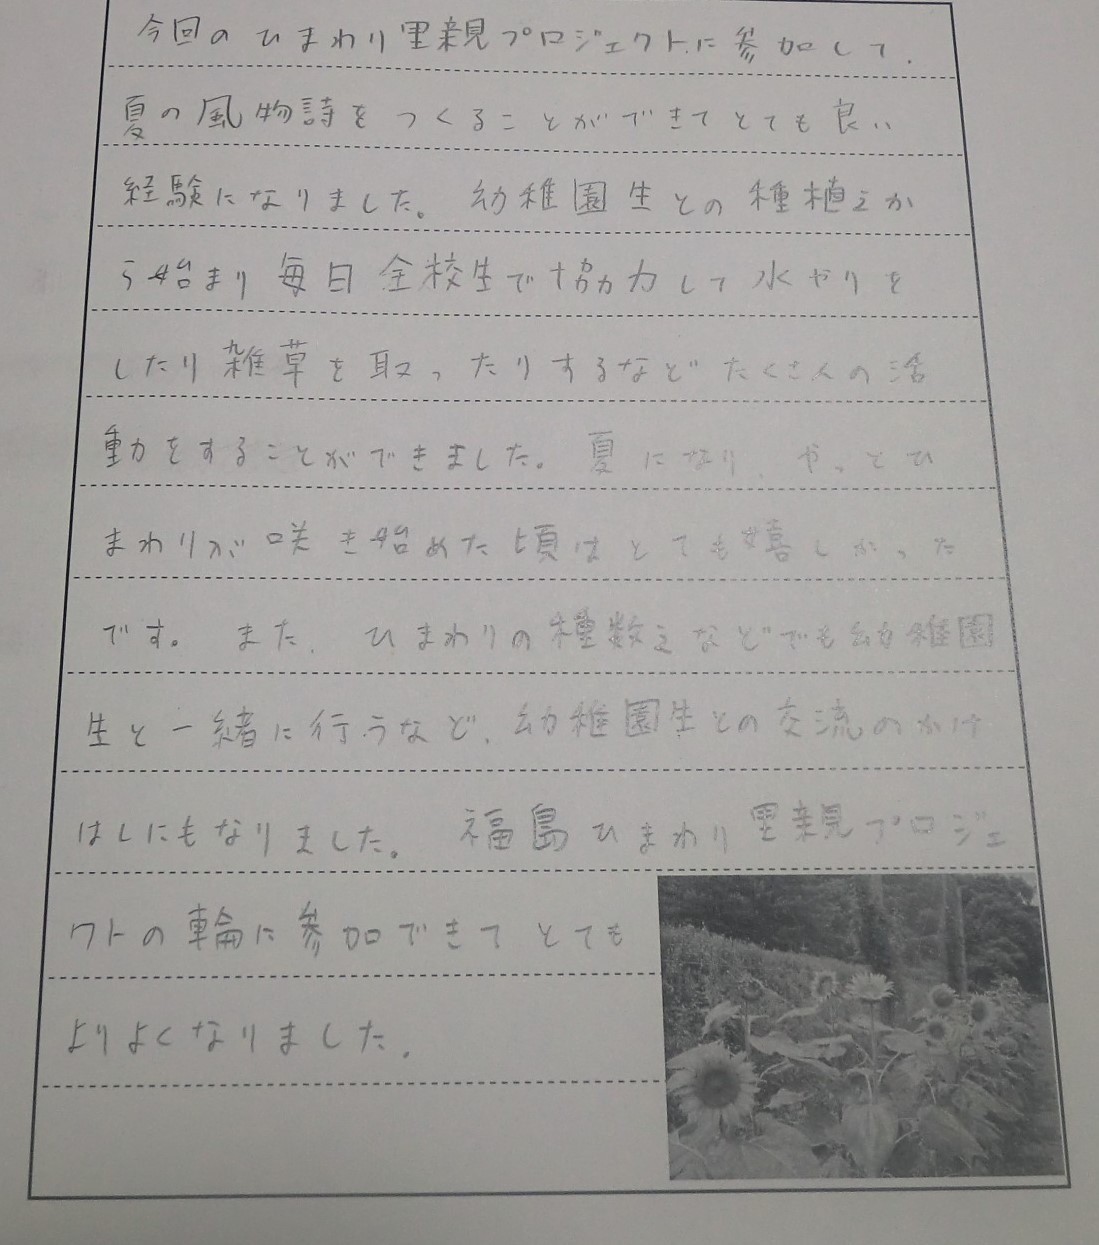 今回のひまわり里親プロジェクトに参加して、
夏の風物詩をつくることができてとても良い
経験になりました。幼稚園生との種植えか
ら始まり毎日全校生で協力して水やりを
したり雑草を取ったりするなどたくさんの活
動をすることができました。夏になり、やっとひ
まわりが咲き始めた頃はとても嬉しかった
です。また、ひまわりの種数えなどでも幼稚園
生と一緒に行うなど、幼稚園生との交流のかけ
はしにもなりました。福島ひまわり里親プロジェ
クトの輪に参加できてとても
よりよくなりました。